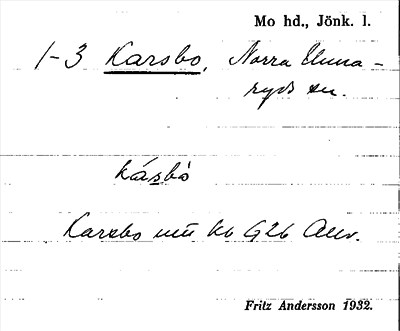 Mo hd., Jönk. l.
1-3 Karsbo, Norra Unna-
ryds sn.
kásbò
Karsbo mtl kb G26 Allv.
Fritz Andersson 1932.